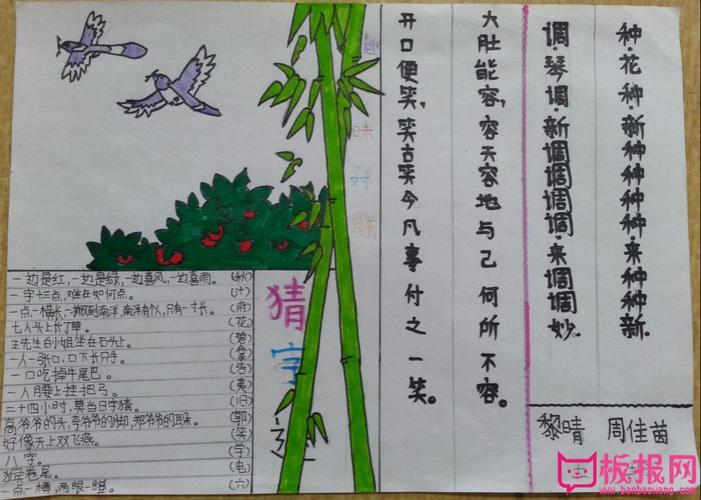 种花种新种种种种来种种新
调琴调新调调调调来调调妙
大肚能容,容天容地与己何所不容。
开口便笑,笑古笑今凡事付之一笑。
趣
味
猜
字
谜
一边是红,一边是绿,一边喜风,一边喜雨。(秋)
一字十三点,难在如何点。(汁)
七人头上长了草。(花)
王先生白小姐坐在石头上。(碧)
一人一张口,口下长只手。(拿)
一口吃掉牛尾巴。(告)
一人月要上挂把弓。(夷)
二十四小时,莫当日字猜。(旧)
高爷爷的头,李爷爷的脚,郑爷爷的耳朵。(郭)
好像天上双飞燕。(笑)
八字。(学)
(电)
一点一横,两眼一瞪。(六)
黎晴 周佳茵
板报网
www.banbaowang.com